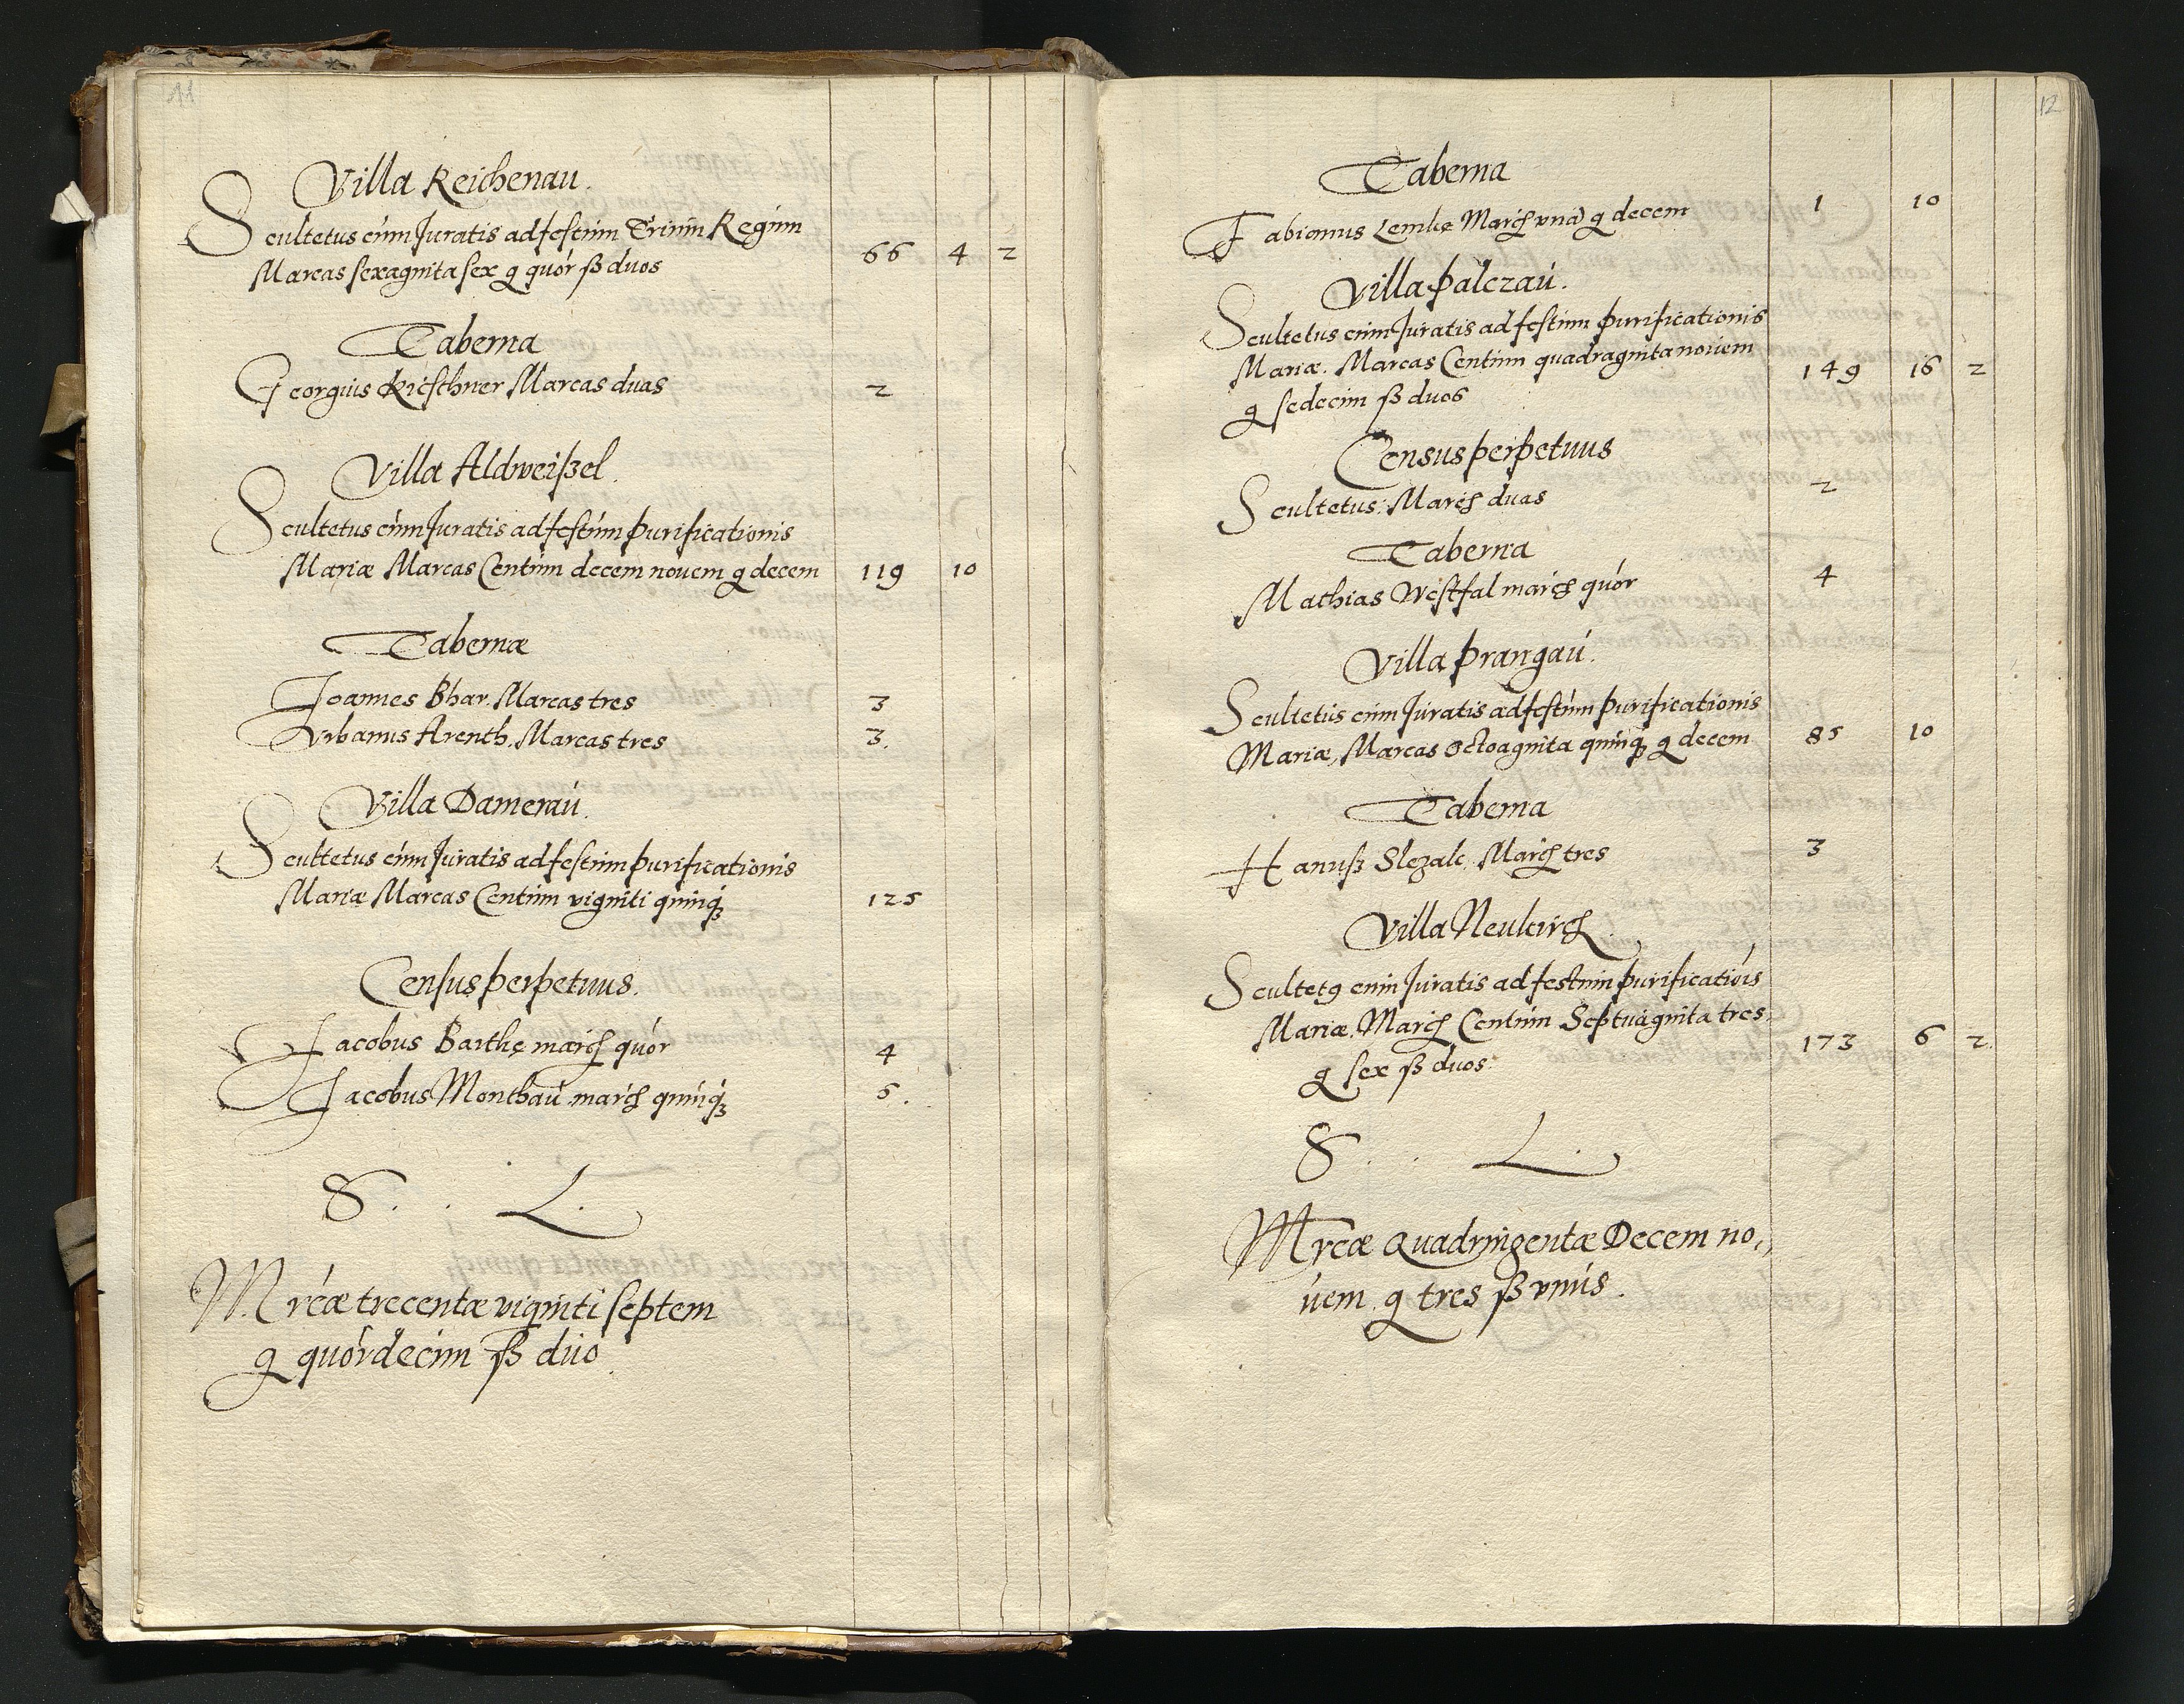 11
Villa Reichenau.
Scultetus cùm Juratis ad festùm Triùm Regùm
Marcas sexaginta sex g quór ß duos 66 4 2
Taberna
Georgius Kirschner Marcas duas 2
Villa Aldweißel.
Scultetus cùm Juratis ad festùm purificationis
Mariæ Marcas Centùm decem novem g decem 119 10
Tabernæ
Joannes Bhar. Marcas tres 3
Urbanus Arenth. Marcas tres 3.
Villa Dameraú.
Scultetus cùm Juratis ad festùm purificationis
Mariæ Marcas Centùm viginti quinq3 125
Census perpetuus.
Jacobus Barthe marcs quór 4
Jacobus Montbaú marcs quinq3 5.
S. . L.
Mrcæ trecentæ viginti septem
g quórdecim ß duo
12
Taberna
Fabianus Lemke Marcs vnā g decem 1 10
Villa palczaú.
Scultetus cùm Juratis ad festùm purificationis
Mariæ. Marcas Centùm quadraginta nouem
g sedecim ß duos 149 16 2
Census perpetuus
Scultetus: Marcs duas 2
Taberna
Mathias Westfal marcs quór 4
Villa prangaú.
Scultetús cùm Juratis ad festùm purificationis
Mariæ, Marcas octoaginta quinq3 g decem 85 10
Taberna
Hanuß Slezak. Marcs tres 3
Villa Neukirch.
Scultet9 cùm Juratis ad festùm purificatiōis
Mariæ. Marcs Centùm Septuaginta tres.
g sex ß duos. 173 6 2.
S . . L.
Mrcæ Quadringentæ Decem no,,
uem. g tres ß vnús.